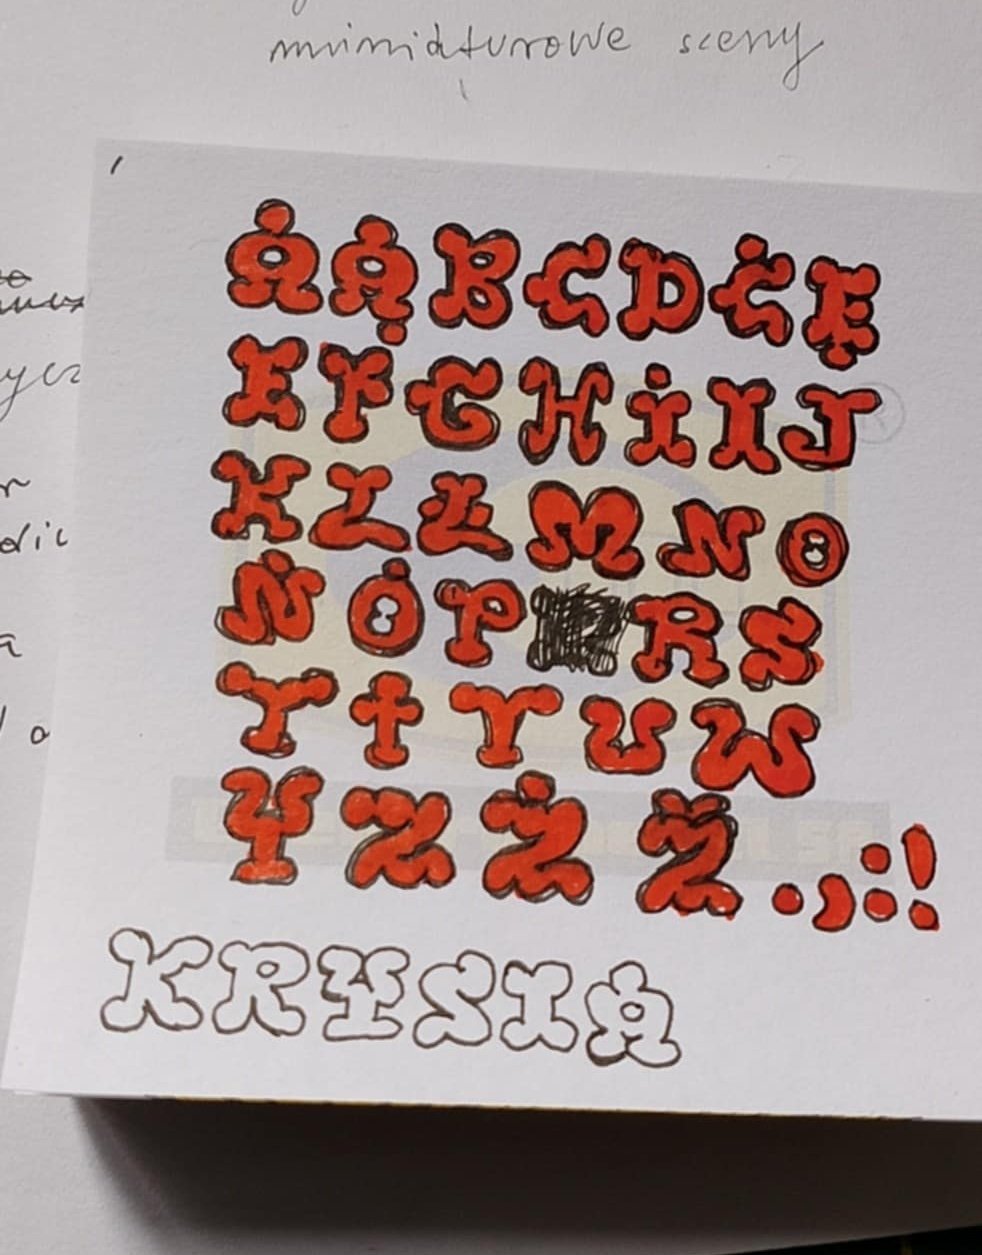 miniaturowe sceny
A Ą B C D Ć Ę
E F G H İ I J
K L Ł M N O
Ń Ó P R S
T t T U W
Y Z Ż Ź . , : !
KRYSIA